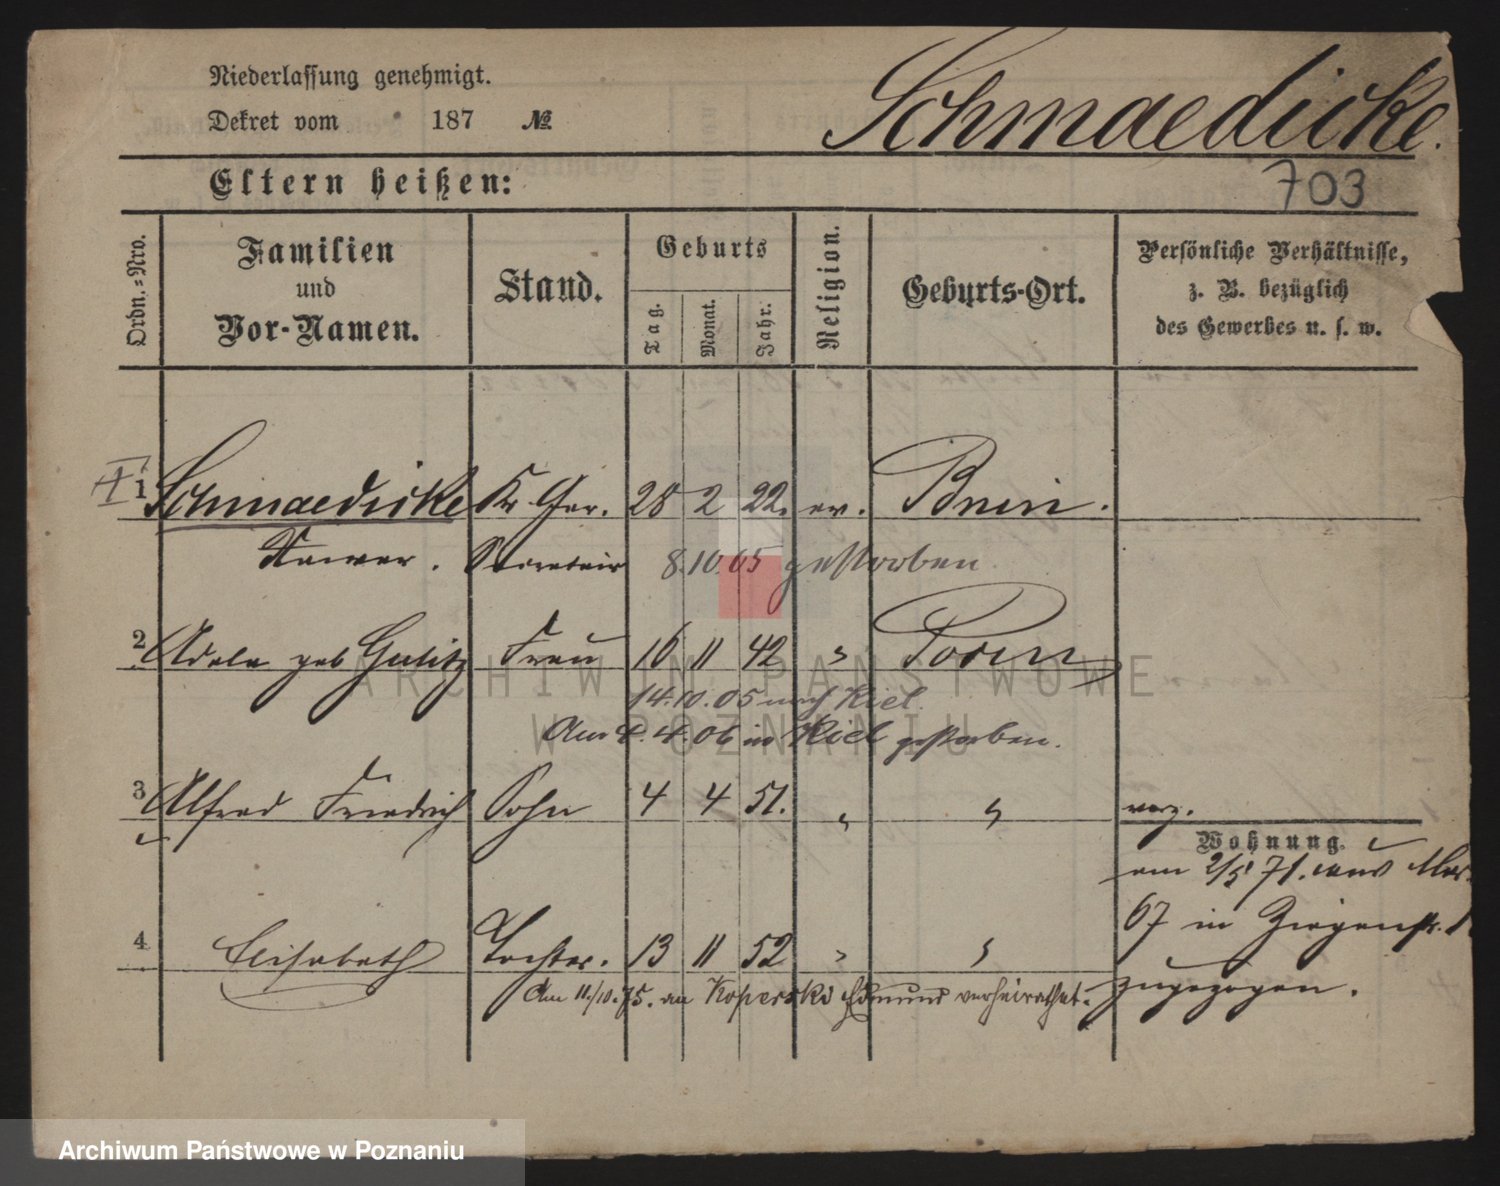 Niederlassung genehmigt.
Dekret vom 187 №
Schmaedicke.
Eltern heißen:
703
Ordn.-Nro.
Familien
und
Vor-Namen.
Stand.
Geburts
Tag.
Monat.
Jahr.
Religion.
Geburts-Ort.
Persönliche Verhältnisse,
z. B. bezüglich
des Gewerbes u. s. w.
1 Schmaedicke Kr. Ger. 28 2 22. ev. Bnin.
Secretair 8.10.05 gestorben.
2 Adele geb Frau 16 11 42 " Posen
14.10.05 nach Kiel.
Am 4.4.06 in Kiel gestorben.
3 Alfred Friedrich Sohn 4 4 51. " " verz.
Wohnung.
am 2/5 71. aus
67 in Ziegenstr.
zugezogen.
4 Elisabeth Tochter. 13 11 52 " "
Am 11./10.75. an Koperski Edmund verheirathet.
ARCHIWUM PAŃSTWOWE
W POZNANIU
Archiwum Państwowe w Poznaniu